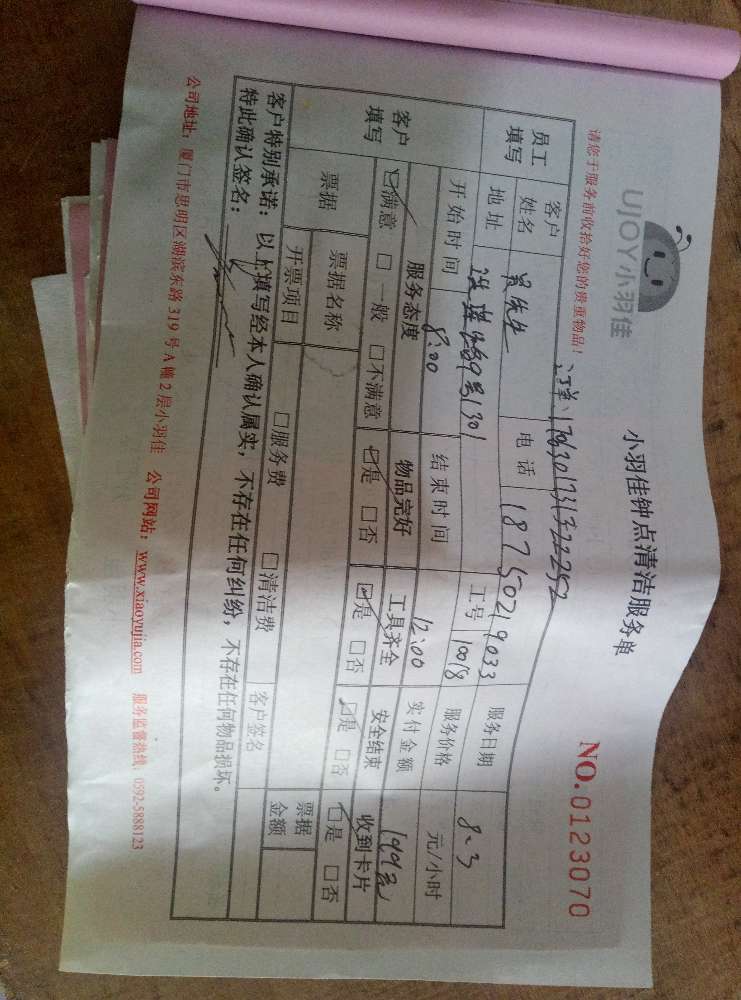 UJOY小羽佳
小羽佳钟点清洁服务单
NO.0123070
请您于服务前收拾好您的贵重物品!
员工填写
客户姓名 吴先生 电话 18750219033 服务日期 8.3
地址 工号 10018 服务价格 元/小时
开始时间 8:00 结束时间 12:00 实付金额 199元
客户填写
服务态度 物品完好 工具齐全 安全结束 收到卡片
☑满意 □一般 □不满意 ☑是 □否 ☑是 □否 ☑是 □否 ☑是 □否
票据 票据名称 □服务费 □清洁费 票据金额
开票项目 客户签名
客户特别承诺:以上填写经本人确认属实,不存在任何纠纷,不存在任何物品损坏。
特此确认签名:
公司地址:厦门市思明区湖滨东路319号A幢2层小羽佳 公司网站:www.xiaoyujia.com 服务监督热线:0592-5888123